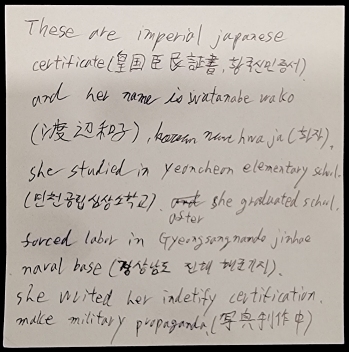 These are imperial japanese
certificate(皇国臣民証書, 황국신민증서)
and her name is watanabe wako
(渡辺和子), korean name hwa ja (화자).
she studied in yeoncheon elementary school.
(연천공립심상소학교). and she graduated school.
after
forced labor in Gyeongsangnamdo jinhae
naval base (경상남도 진해 해군기지).
she writed her indetify certification.
make military propaganda.(写真制作中)